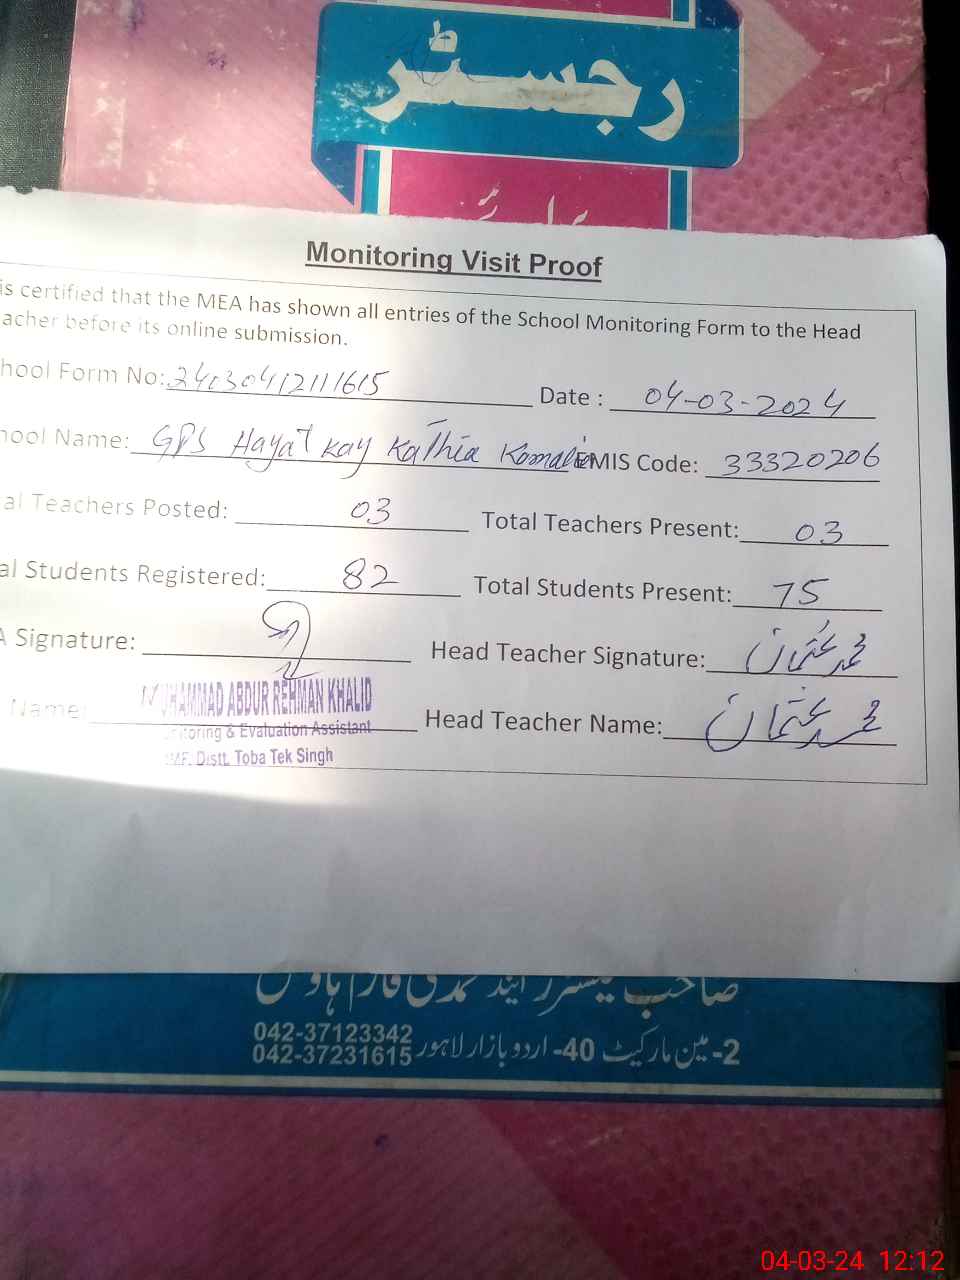 رجسٹر
Monitoring Visit Proof
is certified that the MEA has shown all entries of the School Monitoring Form to the Head
acher before its online submission.
hool Form No: 24030412111615 Date : 04-03-2024
hool Name: GPS Hayat Kay Kathia Kamalia EMIS Code: 33320206
al Teachers Posted: 03 Total Teachers Present: 03
al Students Registered: 82 Total Students Present: 75
A Signature: Head Teacher Signature: محمد عثمان
Name: MUHAMMAD ABDUR REHMAN KHALID Head Teacher Name: محمد عثمان
nitoring & Evaluation Assistant
Distt. Toba Tek Singh
042-37123342
042-37231615
2- مین مارکیٹ 40- اردو بازار لاہور
04-03-24 12:12